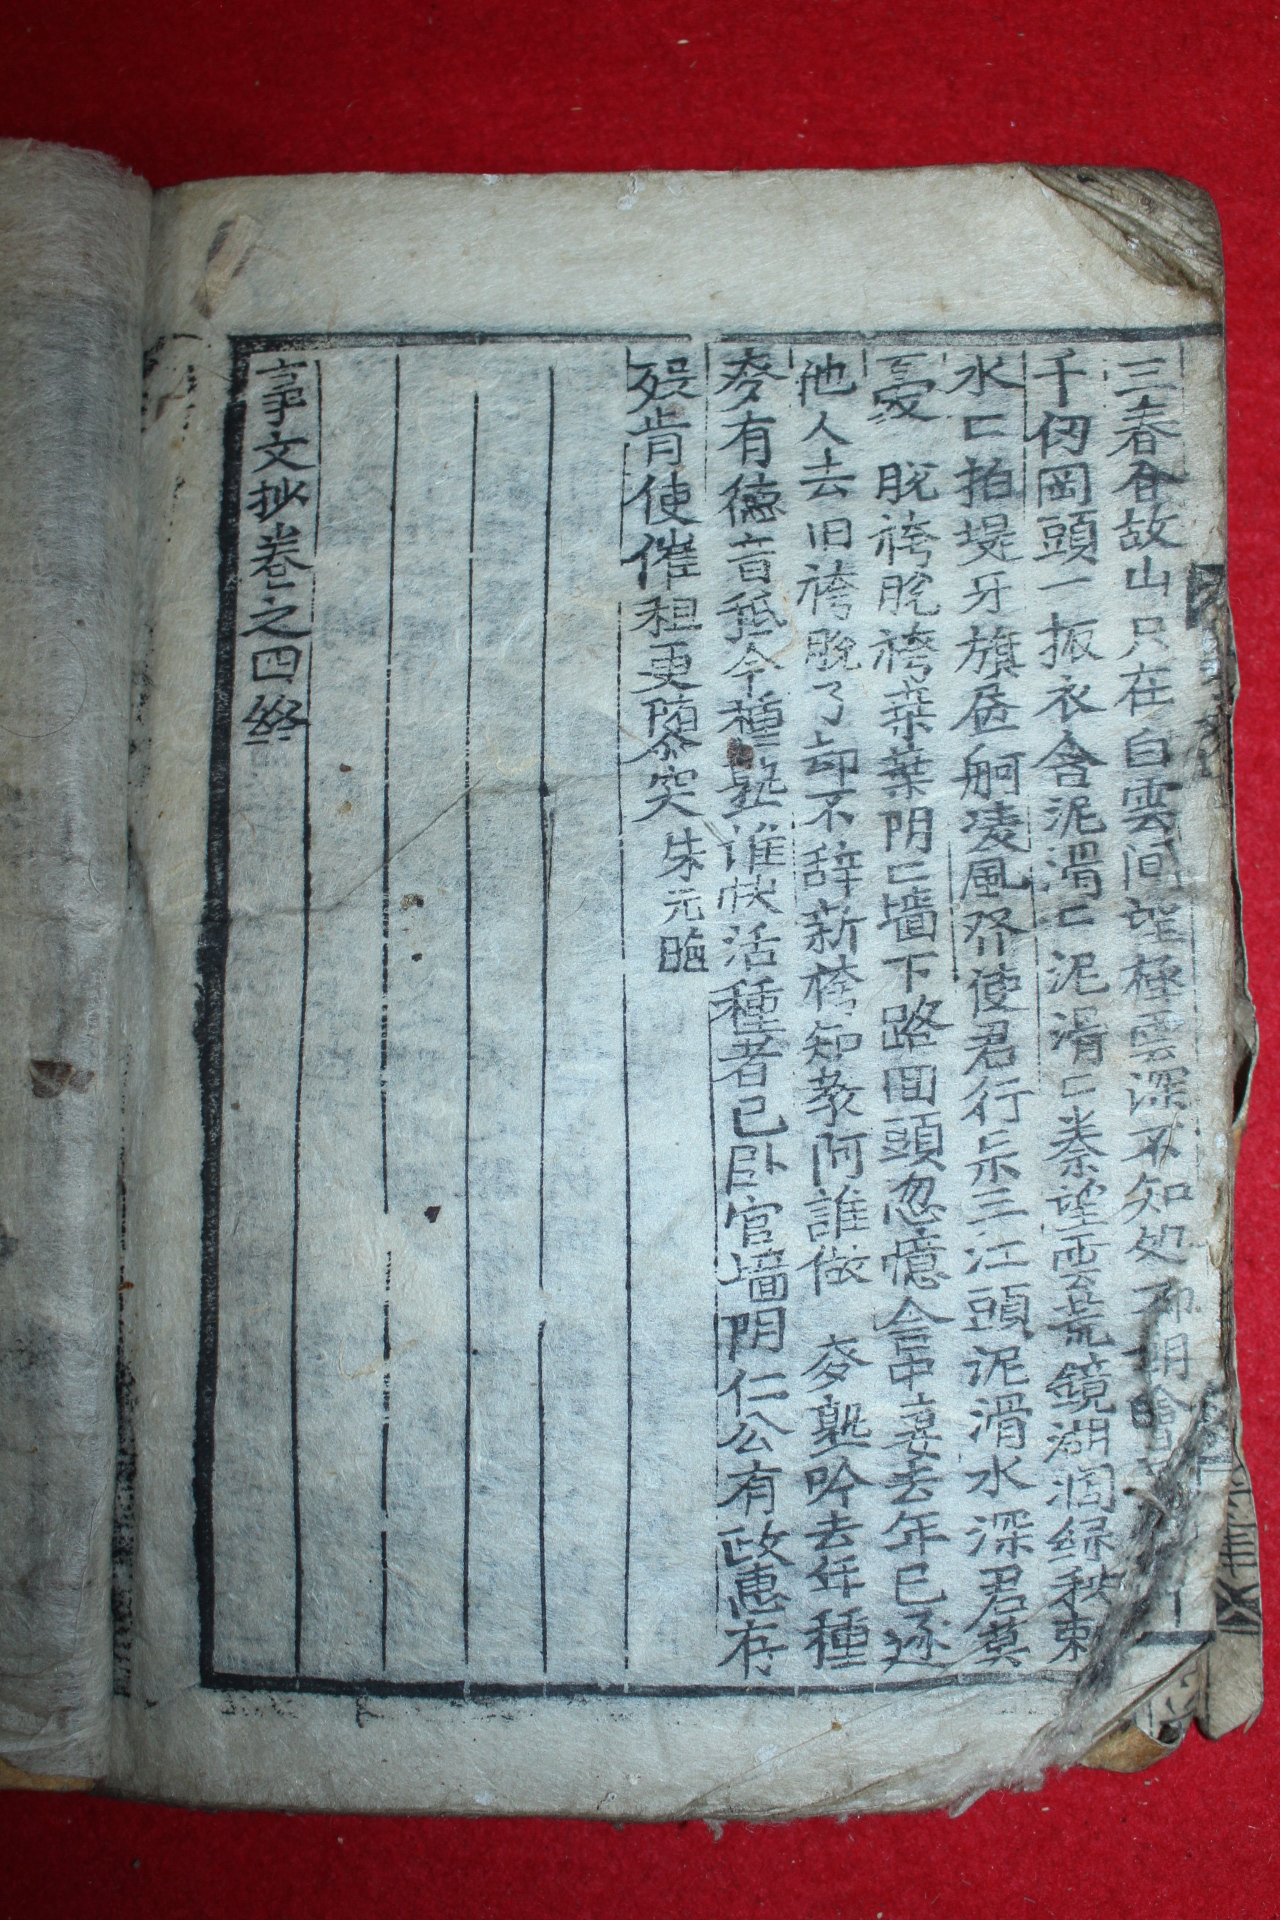 三春谷故山只在白雲间望極雲深不知处不如
千仭岡頭一振衣含泥滑〻泥滑〻秦望雲荒鏡湖阔绿秧刺
水匕拍堤牙旗昼舸凌風発使君行示三江頭泥滑水深君莫
憂 脫袴脫袴桒葉阴匕墻下路回頭忽憶舍中妻去年已逐
他人去旧袴脫了却不辞新袴知教阿誰做 麥熟吟去年種
麥有德音秪今種熟谁快活種者已卧官墙阴仁公有政惠存
殁肯使催租更隳突 朱元晦
事文抄卷之四終